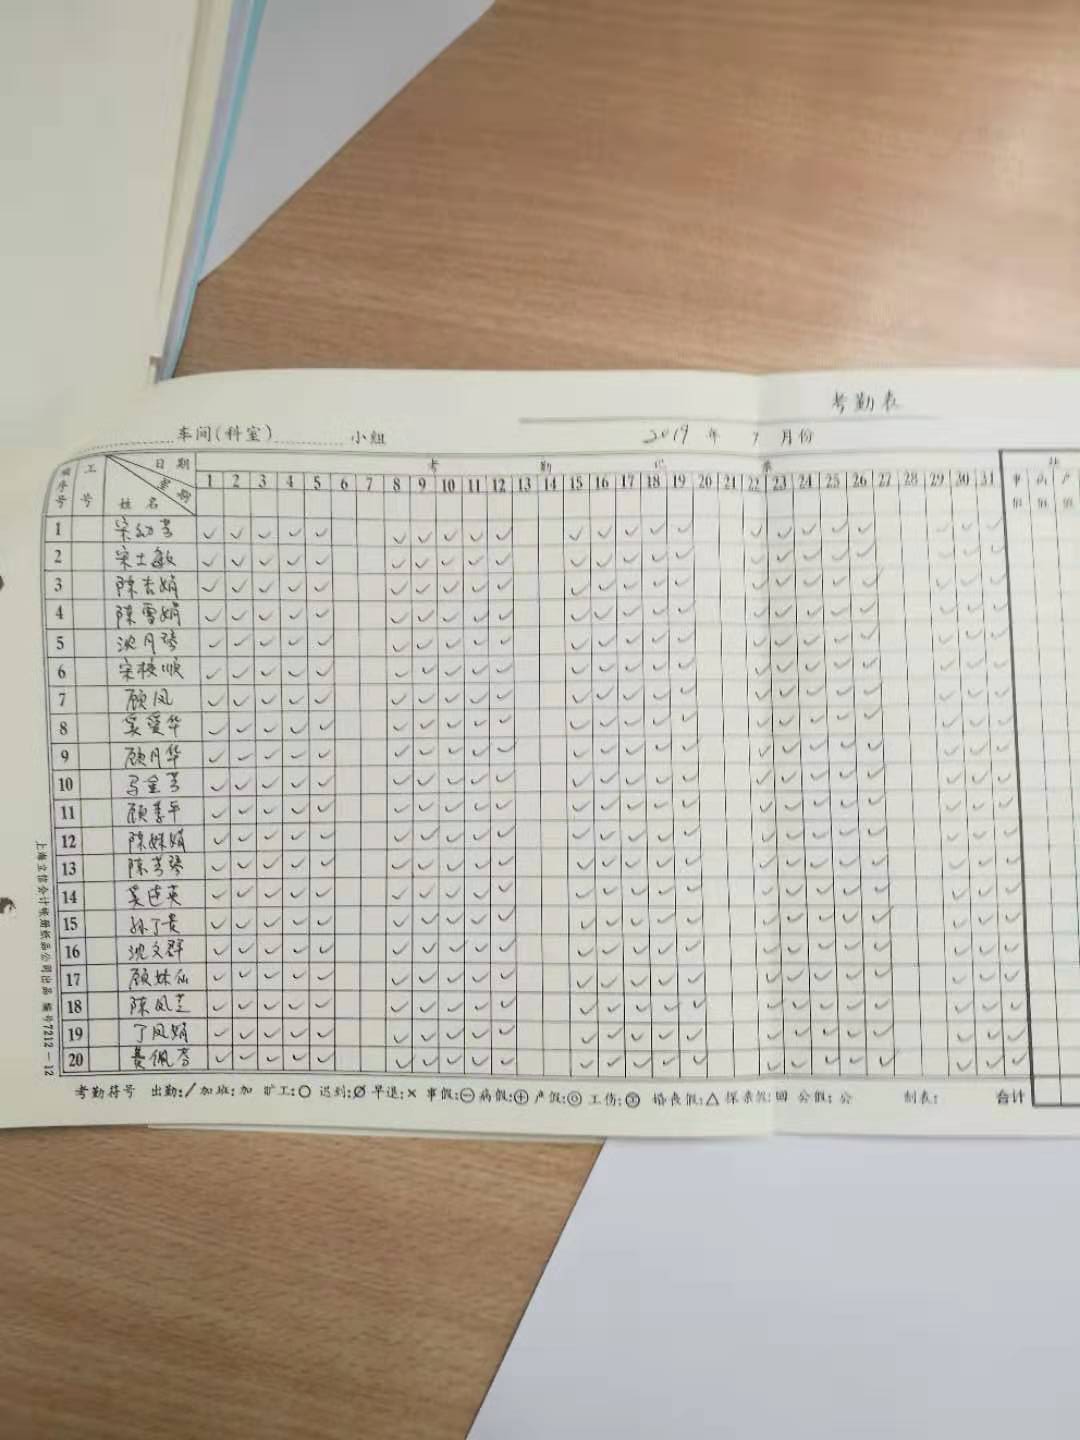 考勤表
车间(科室) 小组 2019 年 7 月份
顺序号 工号 日期 星期 姓名 考 勤 记 录
1 2 3 4 5 6 7 8 9 10 11 12 13 14 15 16 17 18 19 20 21 22 23 24 25 26 27 28 29 30 31
事假 产
1 宋幼芳 ✓ ✓ ✓ ✓ ✓ ✓ ✓ ✓ ✓ ✓ ✓ ✓ ✓ ✓ ✓ ✓ ✓ ✓ ✓ ✓ ✓ ✓ ✓
2 宋士敏 ✓ ✓ ✓ ✓ ✓ ✓ ✓ ✓ ✓ ✓ ✓ ✓ ✓ ✓ ✓ ✓ ✓ ✓ ✓ ✓ ✓ ✓ ✓
3 陈杏娟 ✓ ✓ ✓ ✓ ✓ ✓ ✓ ✓ ✓ ✓ ✓ ✓ ✓ ✓ ✓ ✓ ✓ ✓ ✓ ✓ ✓ ✓ ✓
4 陈雪娟 ✓ ✓ ✓ ✓ ✓ ✓ ✓ ✓ ✓ ✓ ✓ ✓ ✓ ✓ ✓ ✓ ✓ ✓ ✓ ✓ ✓ ✓ ✓
5 沈月琴 ✓ ✓ ✓ ✓ ✓ ✓ ✓ ✓ ✓ ✓ ✓ ✓ ✓ ✓ ✓ ✓ ✓ ✓ ✓ ✓ ✓ ✓ ✓
6 宋顺 ✓ ✓ ✓ ✓ ✓ ✓ ✓ ✓ ✓ ✓ ✓ ✓ ✓ ✓ ✓ ✓ ✓ ✓ ✓ ✓ ✓ ✓ ✓
7 顾凤 ✓ ✓ ✓ ✓ ✓ ✓ ✓ ✓ ✓ ✓ ✓ ✓ ✓ ✓ ✓ ✓ ✓ ✓ ✓ ✓ ✓ ✓ ✓
8 奚爱华 ✓ ✓ ✓ ✓ ✓ ✓ ✓ ✓ ✓ ✓ ✓ ✓ ✓ ✓ ✓ ✓ ✓ ✓ ✓ ✓ ✓ ✓ ✓
9 顾月华 ✓ ✓ ✓ ✓ ✓ ✓ ✓ ✓ ✓ ✓ ✓ ✓ ✓ ✓ ✓ ✓ ✓ ✓ ✓ ✓ ✓ ✓ ✓
10 马金芳 ✓ ✓ ✓ ✓ ✓ ✓ ✓ ✓ ✓ ✓ ✓ ✓ ✓ ✓ ✓ ✓ ✓ ✓ ✓ ✓ ✓ ✓ ✓
11 顾平 ✓ ✓ ✓ ✓ ✓ ✓ ✓ ✓ ✓ ✓ ✓ ✓ ✓ ✓ ✓ ✓ ✓ ✓ ✓ ✓ ✓ ✓ ✓
12 陈妹娟 ✓ ✓ ✓ ✓ ✓ ✓ ✓ ✓ ✓ ✓ ✓ ✓ ✓ ✓ ✓ ✓ ✓ ✓ ✓ ✓ ✓ ✓ ✓
13 陈芳琴 ✓ ✓ ✓ ✓ ✓ ✓ ✓ ✓ ✓ ✓ ✓ ✓ ✓ ✓ ✓ ✓ ✓ ✓ ✓ ✓ ✓ ✓ ✓
14 连英 ✓ ✓ ✓ ✓ ✓ ✓ ✓ ✓ ✓ ✓ ✓ ✓ ✓ ✓ ✓ ✓ ✓ ✓ ✓ ✓ ✓ ✓ ✓
15 孙丁贵 ✓ ✓ ✓ ✓ ✓ ✓ ✓ ✓ ✓ ✓ ✓ ✓ ✓ ✓ ✓ ✓ ✓ ✓ ✓ ✓ ✓ ✓ ✓
16 沈文群 ✓ ✓ ✓ ✓ ✓ ✓ ✓ ✓ ✓ ✓ ✓ ✓ ✓ ✓ ✓ ✓ ✓ ✓ ✓ ✓ ✓ ✓ ✓
17 顾妹仙 ✓ ✓ ✓ ✓ ✓ ✓ ✓ ✓ ✓ ✓ ✓ ✓ ✓ ✓ ✓ ✓ ✓ ✓ ✓ ✓ ✓ ✓ ✓
18 陈凤芝 ✓ ✓ ✓ ✓ ✓ ✓ ✓ ✓ ✓ ✓ ✓ ✓ ✓ ✓ ✓ ✓ ✓ ✓ ✓ ✓ ✓ ✓ ✓
19 丁凤娟 ✓ ✓ ✓ ✓ ✓ ✓ ✓ ✓ ✓ ✓ ✓ ✓ ✓ ✓ ✓ ✓ ✓ ✓ ✓ ✓ ✓ ✓ ✓
20 佩 ✓ ✓ ✓ ✓ ✓ ✓ ✓ ✓ ✓ ✓ ✓ ✓ ✓ ✓ ✓ ✓ ✓ ✓ ✓ ✓ ✓ ✓ ✓
考勤符号 出勤:/ 加班:加 旷工:○ 迟到:Ø 早退:× 事假:⊖ 病假:⊕ 产假:◎ 工伤: 婚丧假:△ 探亲假:回 公假:公 制表: 合计
上海立信会计帐册纸品公司出品 编号7212-12